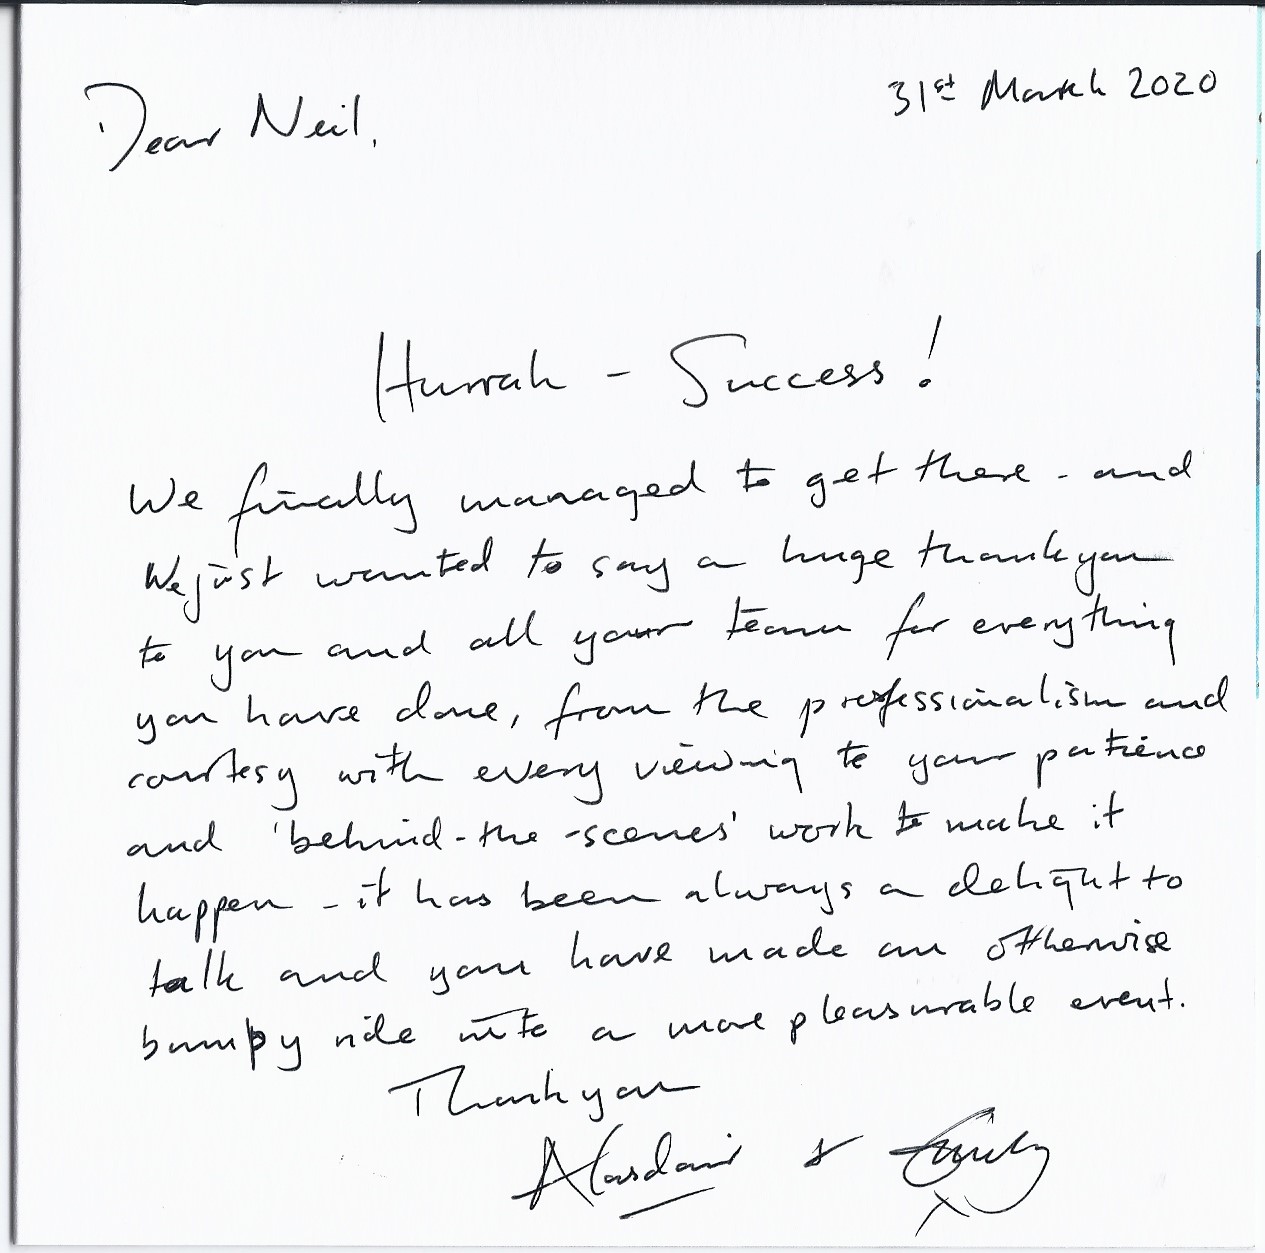 31st March 2020
Dear Neil,
Hurrah - Success!
We finally managed to get there - and
we just wanted to say a huge thank you
to you and all your team for everything
you have done, from the professionalism and
courtesy with every viewing to your patience
and 'behind-the-scenes' work to make it
happen - it has been always a delight to
talk and you have made an otherwise
bumpy ride into a more pleasurable event.
Thank you
Alasdair & Emily
x